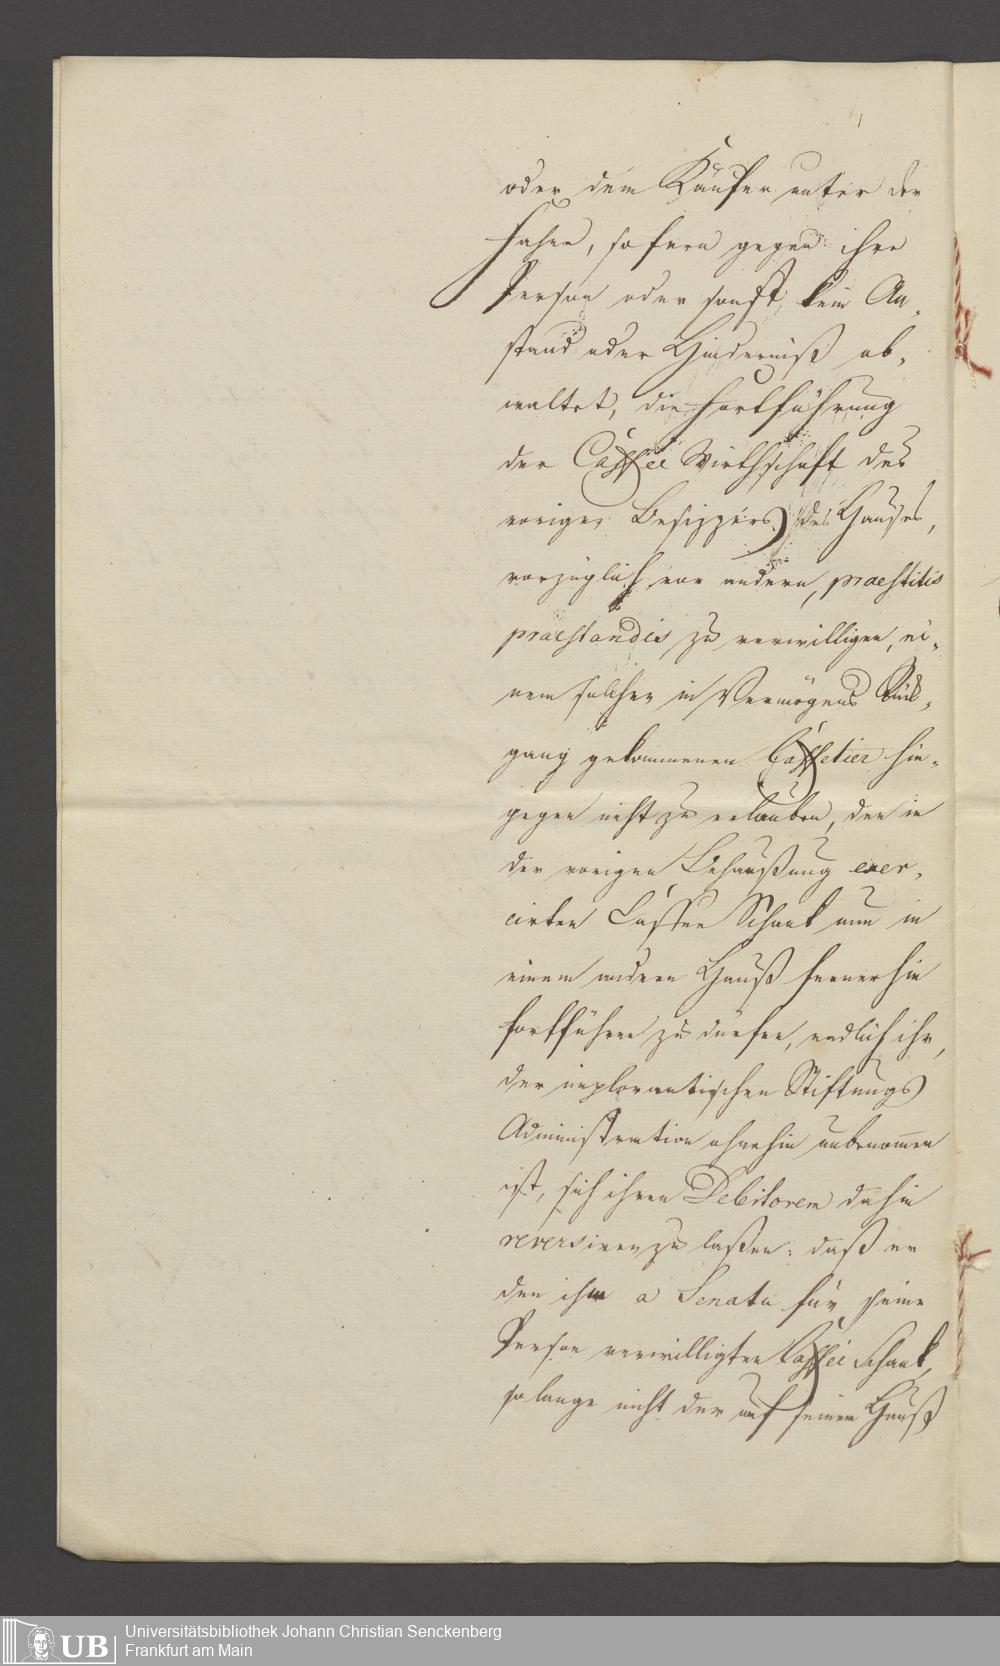 oder dem Käufer unter der
Fahne, so fern gegen ihre
Person oder sonst, kein An,
stand oder Hinderniß ob,
waltet, die Fortführung
der Caffée Wirthschaft des
vorigen Besizzers des Hauses,
vorzüglich vor andern, praestitis
praestandis zu verwilligen, ei,
nem solchen in Vermögens Rük,
gang gekommenen Caffetier hin,
gegen nicht zu erlauben, den in
der vorigen Behaußung exer,
cirten Caffee Schank nun in
einem andern Hauß fernerhin
fortführen zu dürfen, endlich ihr,
der implorantischen Stiftungs
Administration ohnehin unbenom̅en
ist, sich ihren Debitorem dahin
reversiren zu laßen: daß er
den ihm a Senatu für seine
Person verwilligten Caffée Schank,
so lange nicht der auf seinem Hauß
UB
Universitätsbibliothek Johann Christian Senckenberg
Frankfurt am Main